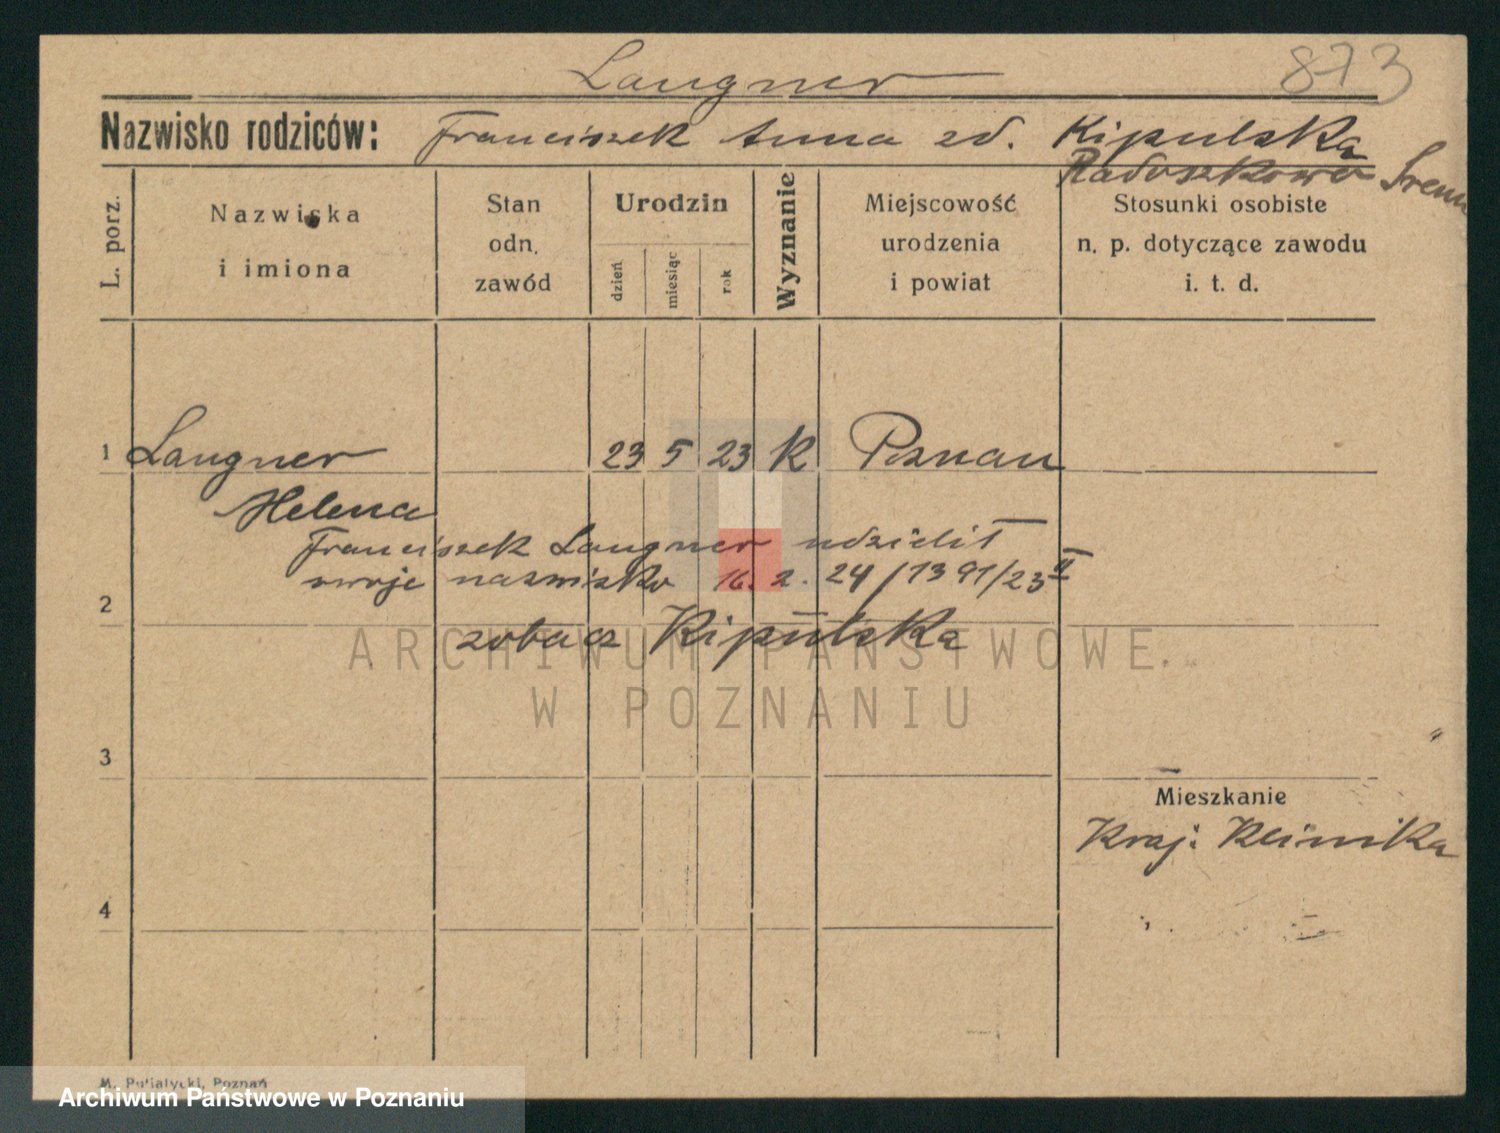 873
Langner
Nazwisko rodziców: Franciszek Anna zd. Kipulska
Raduszkowo Śrem
L. porz.
Nazwiska
i imiona
Stan
odn.
zawód
Urodzin
dzień
miesiąc
rok
Wyznanie
Miejscowość
urodzenia
i powiat
Stosunki osobiste
n. p. dotyczące zawodu
i. t. d.
1 Langner 23 5 23 K Poznań
Helena
Franciszek Langner udzielił
swoje nazwisko 16. 2. 24/1391/23 II
2
zobacz Kipulska
ARCHIWUM PAŃSTWOWE
W POZNANIU
3
Mieszkanie
Kraj. Klinika
4
M. Putiatycki, Poznań
Archiwum Państwowe w Poznaniu